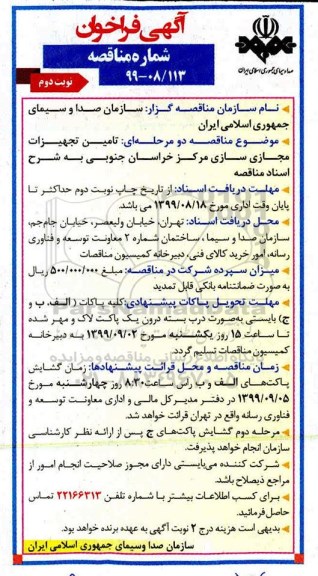 آگهی فراخوان
شماره مناقصه
۹۹-۰۸/۱۱۳
نوبت دوم
صدا و سیمای جمهوری اسلامی ایران
نام سازمان مناقصه گزار: سازمان صدا و سیمای
جمهوری اسلامی ایران
موضوع مناقصه دو مرحله‌ای: تامین تجهیزات
مجازی سازی مرکز خراسان جنوبی به شرح
اسناد مناقصه
مهلت دریافت اسناد: از تاریخ چاپ نوبت دوم حداکثر تا
پایان وقت اداری مورخ ۱۳۹۹/۰۸/۱۸ می باشد.
محل دریافت اسناد: تهران، خیابان ولیعصر، خیابان جام‌جم،
سازمان صدا و سیما، ساختمان شماره ۲ معاونت توسعه و فناوری
رسانه، امور خرید کالای فنی، دبیرخانه کمیسیون مناقصات
میزان سپرده شرکت در مناقصه: مبلغ ۵۰۰/۰۰۰/۰۰۰ ریال
به صورت ضمانتنامه بانکی قابل تمدید
مهلت تحویل پاکات پیشنهادی: کلیه پاکات (الف، ب و
ج) بایستی به‌صورت درب بسته درون یک پاکت لاک و مهر شده
تا ساعت ۱۵ روز یکشنبه مورخ ۱۳۹۹/۰۹/۰۲ به دبیرخانه
کمیسیون مناقصات تسلیم گردد.
زمان مناقصه و محل قرائت پیشنهادها: زمان گشایش
پاکت‌های الف و ب راس ساعت ۸:۳۰ روز چهارشنبه مورخ
۱۳۹۹/۰۹/۰۵ در دفتر مدیرکل مالی و اداری معاونت توسعه و
فناوری رسانه واقع در تهران قرائت خواهد شد.
مرحله دوم گشایش پاکت‌های ج پس از ارائه نظر کارشناسی
سازمان انجام خواهد پذیرفت.
شرکت کننده می‌بایستی دارای مجوز صلاحیت انجام امور از
مراجع ذیصلاح باشد.
برای کسب اطلاعات بیشتر با شماره تلفن ۲۲۱۶۶۳۱۳ تماس
حاصل فرمائید.
بدیهی است هزینه درج ۲ نوبت آگهی به عهده برنده خواهد بود.
سازمان صدا وسیمای جمهوری اسلامی ایران